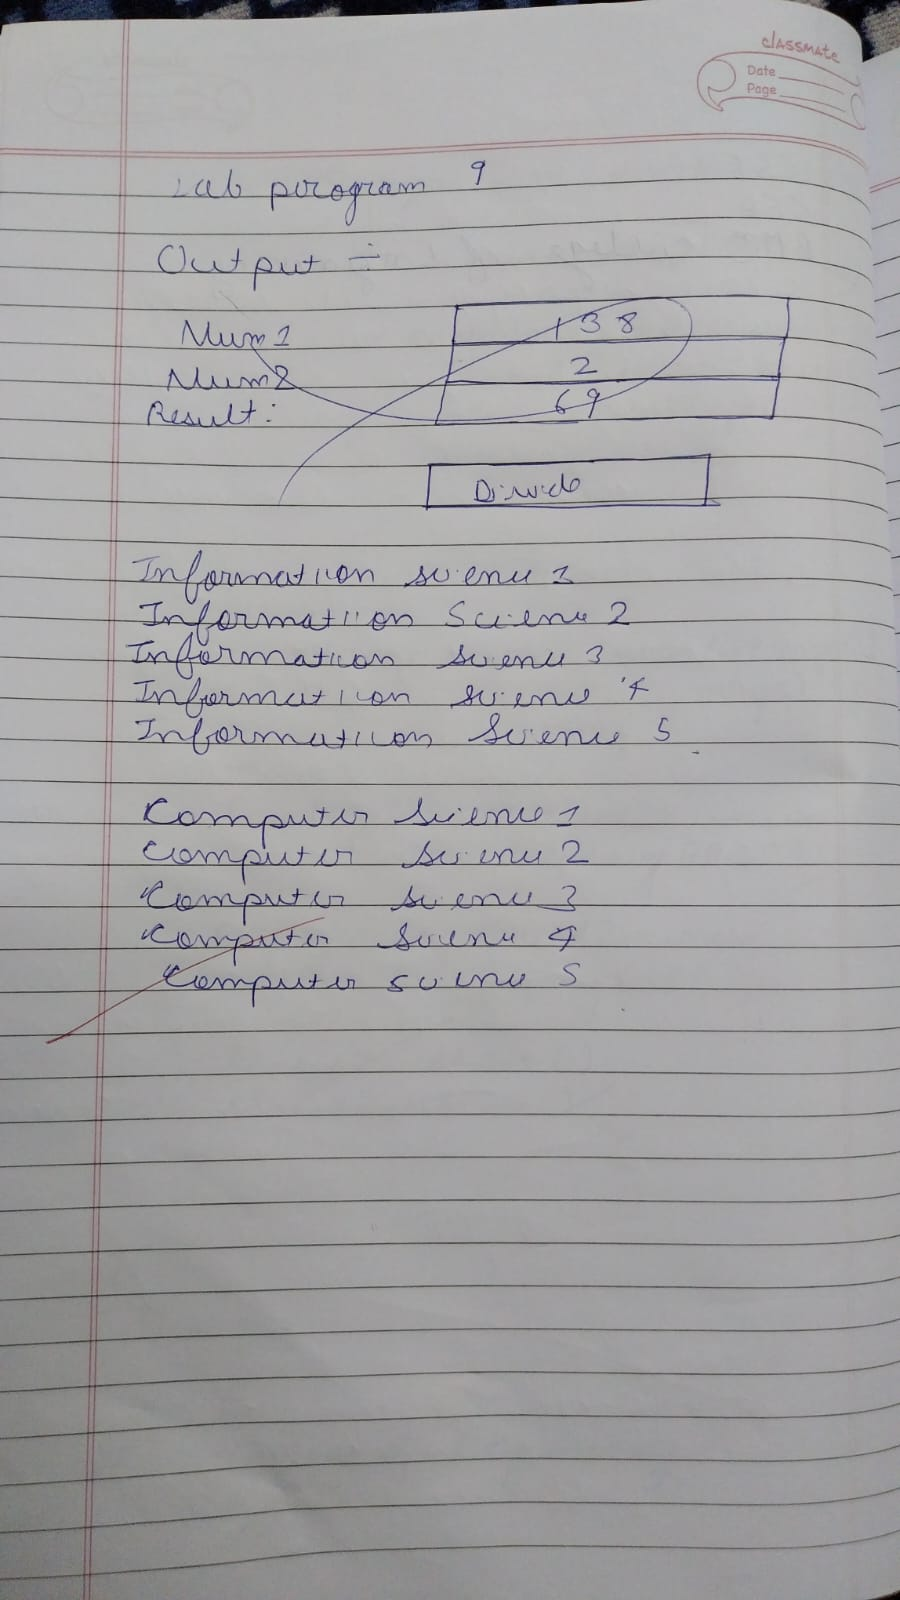 classmate
Date
Page
Lab program 9
Output ÷
Num1 138
Num2 2
Result: 69
Divide
Information science 1
Information Science 2
Information science 3
Information science 4
Information Science 5
Computer Science 1
Computer Science 2
Computer science 3
Computer Science 4
Computer science 5